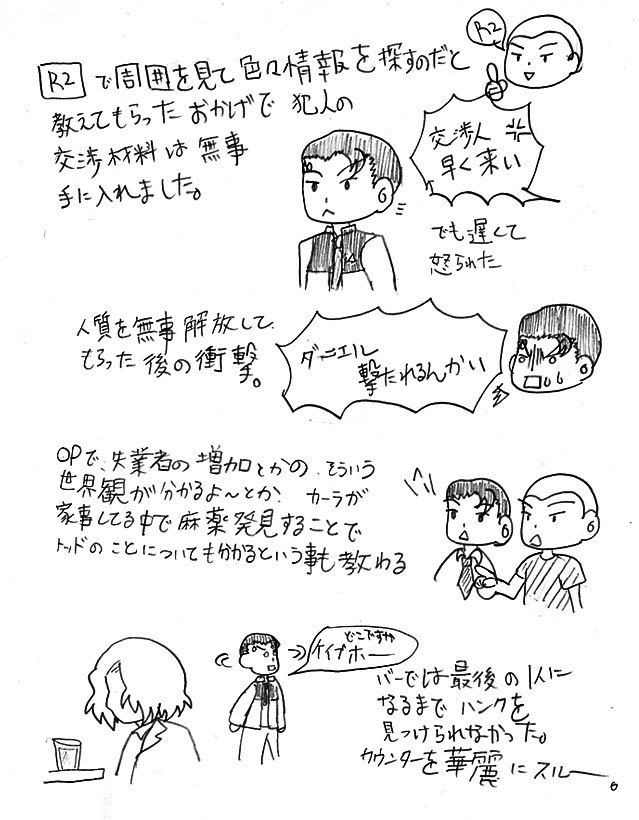 R2
R2で周囲を見て色々情報を探すのだと
教えてもらったおかげで犯人の
交渉材料は無事
手に入れました。
交渉人
早く来い
でも遅くて
怒られた
人質を無事解放して、
もらった後の衝撃。
ダニエル
撃たれるんかい
OPで、失業者の増加とかの、そういう
世界観が分かるよ〜とか、カーラが
家事してる中で麻薬発見することで
トッドのことについても分かるという事も教わる
どこですか
ケイブホー
バーでは最後の1人に
なるまでハンクを
見つけられなかった。
カウンターを華麗にスルー